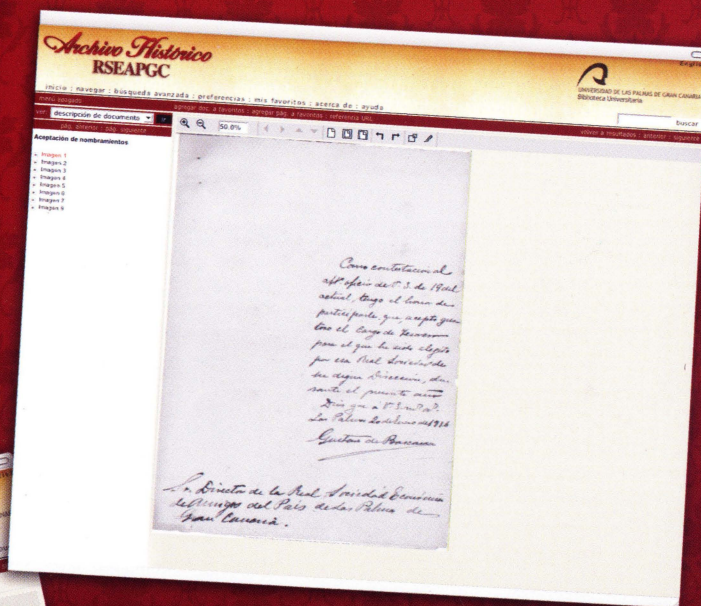 Archivo Histórico
RSEAPGC
English
UNIVERSIDAD DE LAS PALMAS DE GRAN CANARIA
Biblioteca Universitaria
inicio : navegar : búsqueda avanzada : preferencias : mis favoritos : acerca de : ayuda
buscar
menú apagado
agregar doc. a favoritos : agregar pág. a favoritos : referencia URL
volver a resultados : anterior : siguiente
ver descripción de documento
50.0%
pág. anterior : pág. siguiente
Aceptación de nombramientos
Imagen 1
Imagen 2
Imagen 3
Imagen 4
Imagen 5
Imagen 6
Imagen 7
Imagen 8
Como contestación al
oficio de V. S. de 19 del
actual, tengo el honor de
participarle, que, acepto gus
toso el cargo de
para el que he sido elegido
por esa Real Sociedad de
su digna Dirección, du
rante el presente año
Dios gue a V. S. m. a.
Las Palmas 20 de Enero de
Gustavo de
Sr. Director de la Real Sociedad Económica
de Amigos del País de Las Palmas de
Gran Canaria.